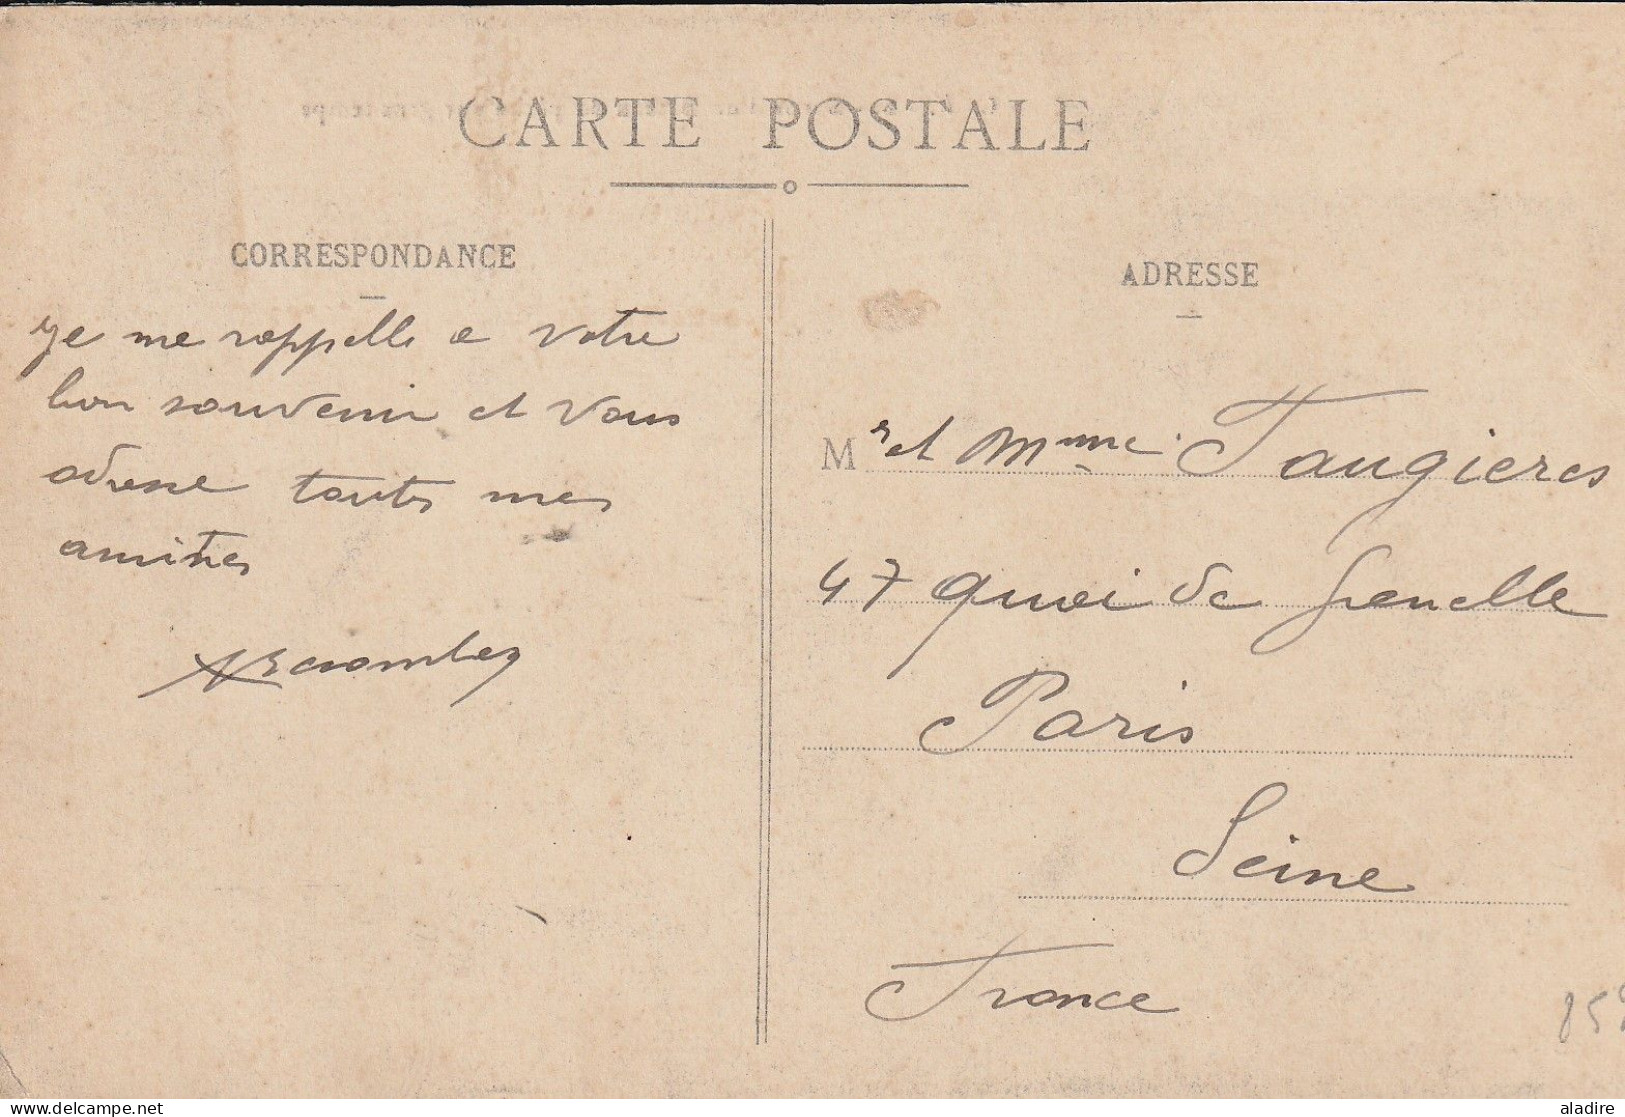 CARTE POSTALE
CORRESPONDANCE
je me rappelle a votre
bon souvenir et vous
adresse toutes mes
amities
ADRESSE
Mr et Mme Faugieres
47 quai de Grenelle
Paris
Seine
France
delcampe.net
aladire